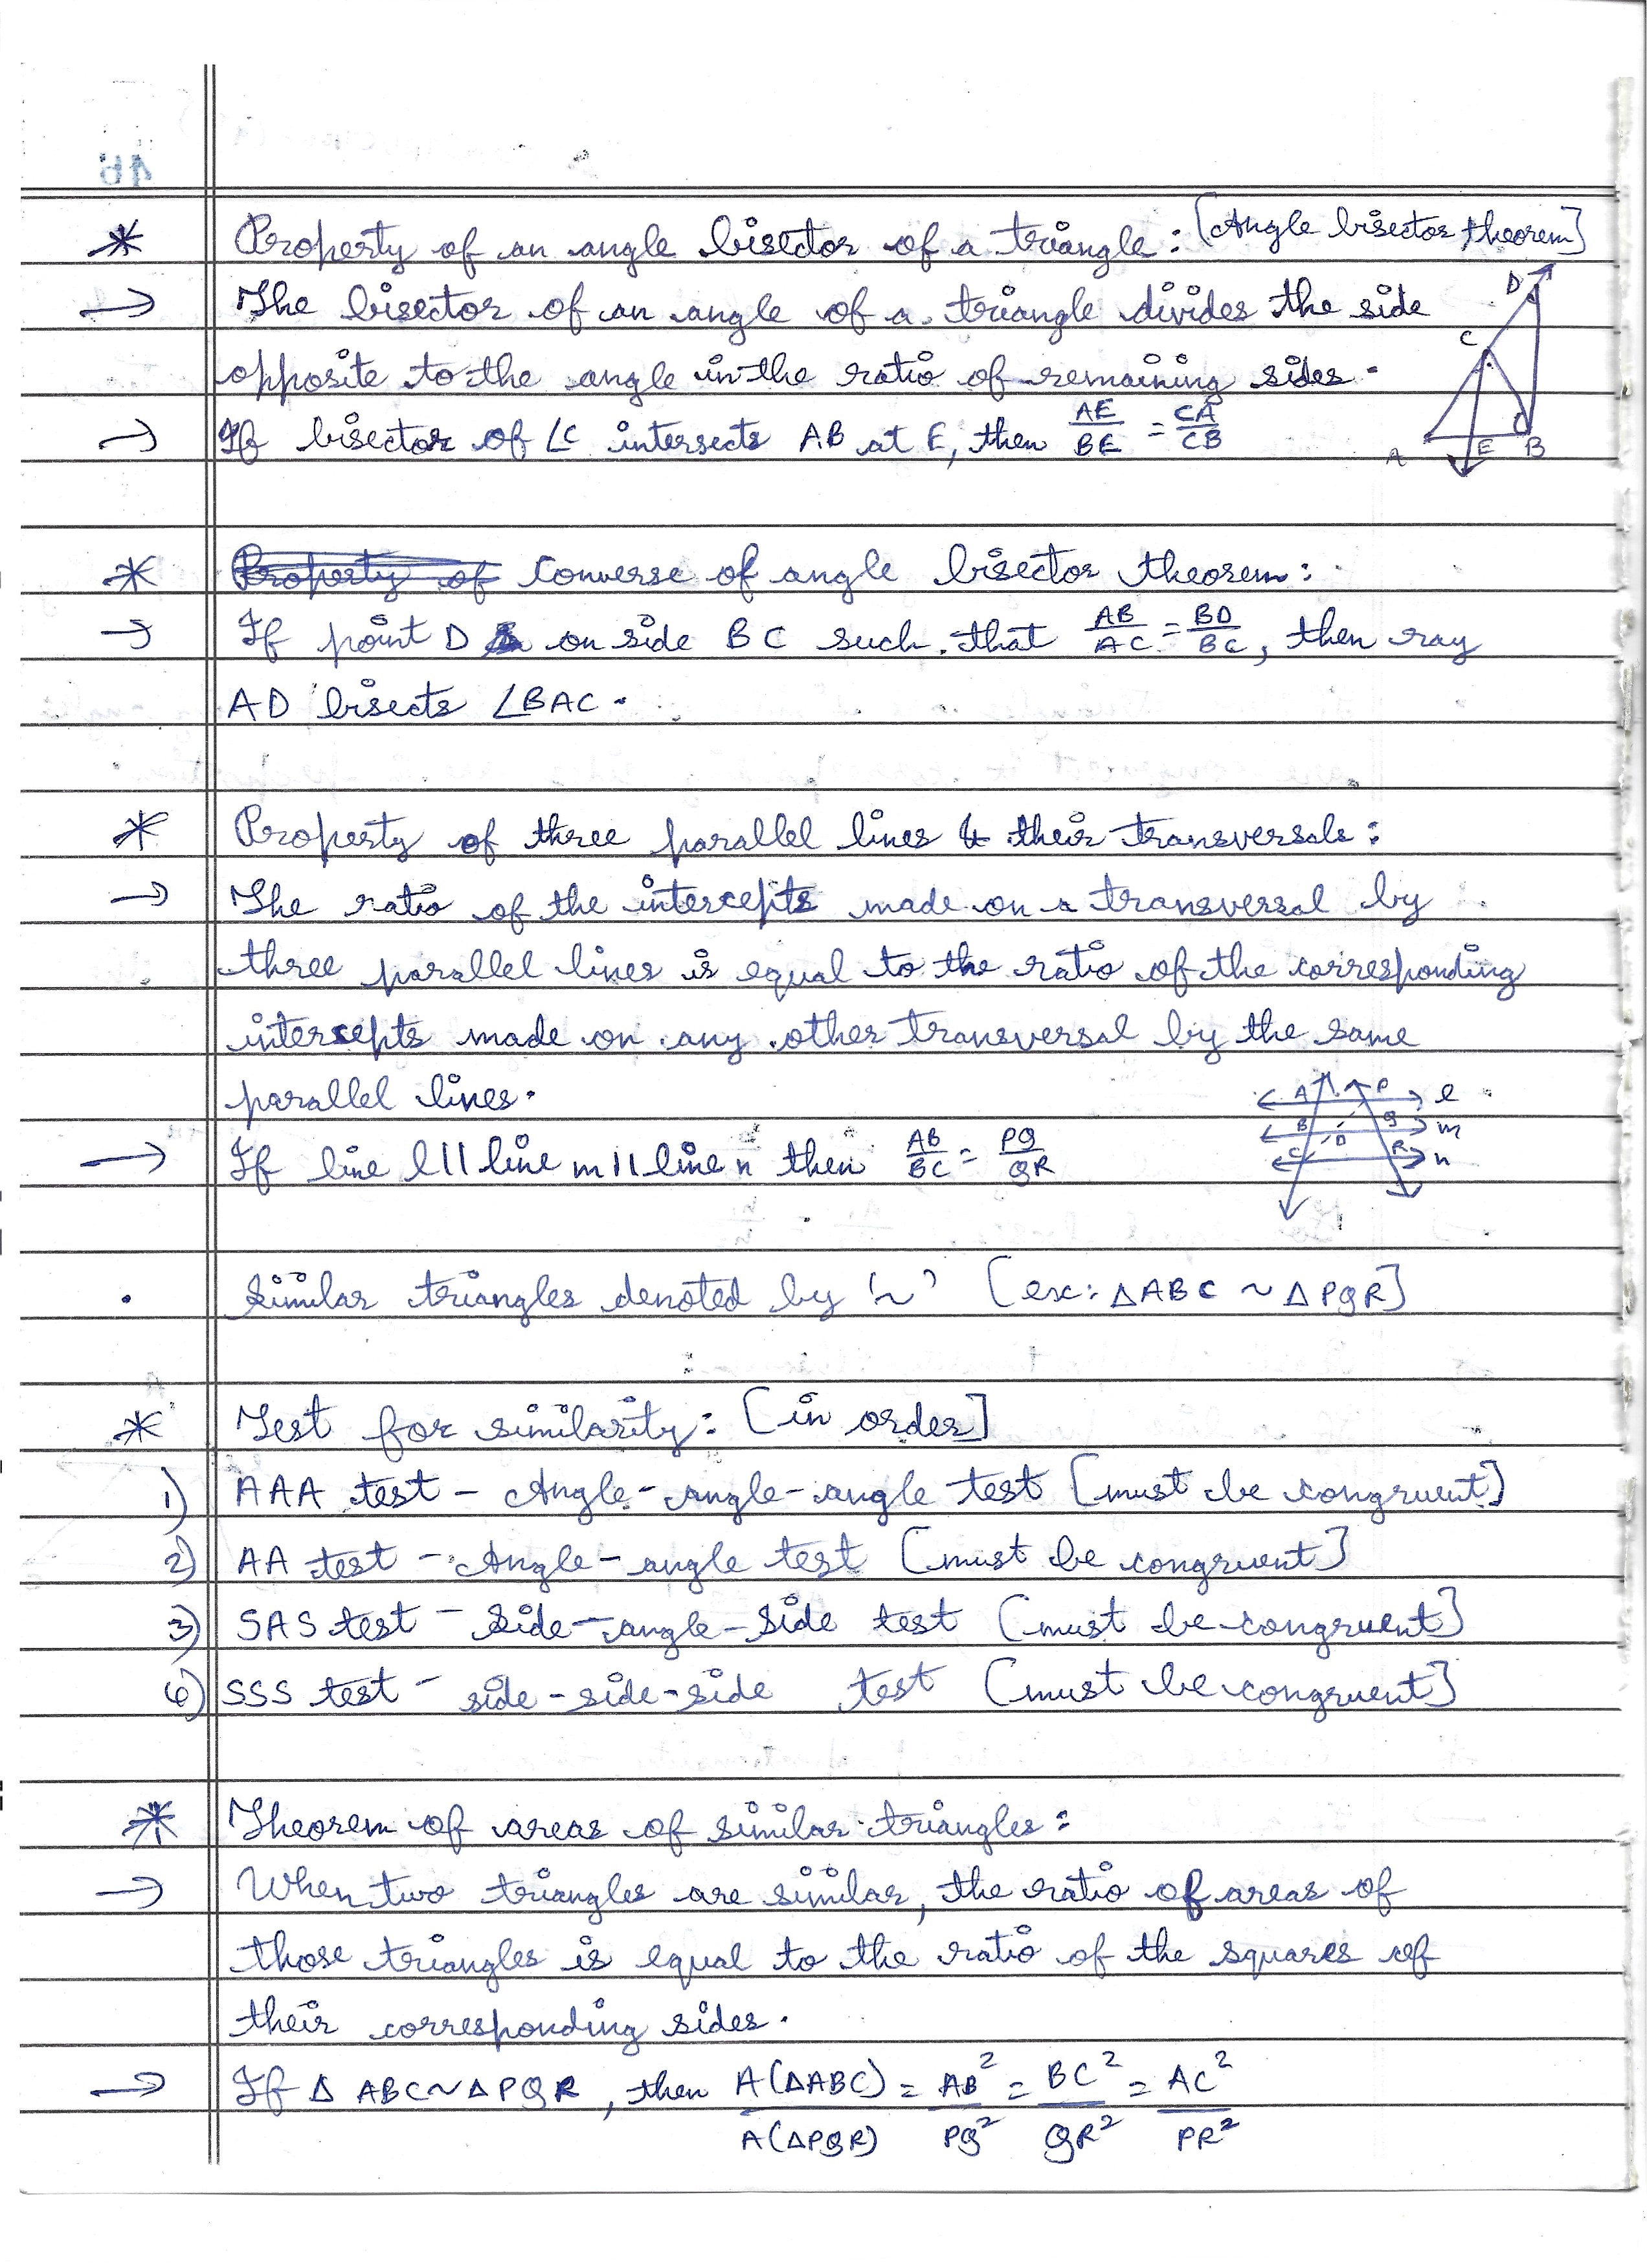 * Property of an angle bisector of a triangle: [Angle bisector theorem]
→ The bisector of an angle of a triangle divides the side
opposite to the angle in the ratio of remaining sides.
→ If bisector of ∠C intersects AB at E, then AE/BE = CA/CB
D
C
A E B
* Property of Converse of angle bisector theorem:
→ If point D on side BC such that AB/AC = BD/BC, then ray
AD bisects ∠BAC.
* Property of three parallel lines & their transversals:
→ The ratio of the intercepts made on a transversal by
three parallel lines is equal to the ratio of the corresponding
intercepts made on any other transversal by the same
parallel lines.
→ If line l || line m || line n then AB/BC = PQ/QR
A P l
B Q m
D
C R n
• Similar triangles denoted by '~' [ex: △ABC ~ △PQR]
* Test for similarity: [in order]
1) AAA test - Angle-angle-angle test [must be congruent]
2) AA test - Angle-angle test [must be congruent]
3) SAS test - Side-angle-side test [must be congruent]
4) SSS test - side-side-side test [must be congruent]
* Theorem of areas of similar triangles:
→ When two triangles are similar, the ratio of areas of
those triangles is equal to the ratio of the squares of
their corresponding sides.
→ If △ ABC ~ △ PQR, then A(△ABC)/A(△PQR) = AB²/PQ² = BC²/QR² = AC²/PR²